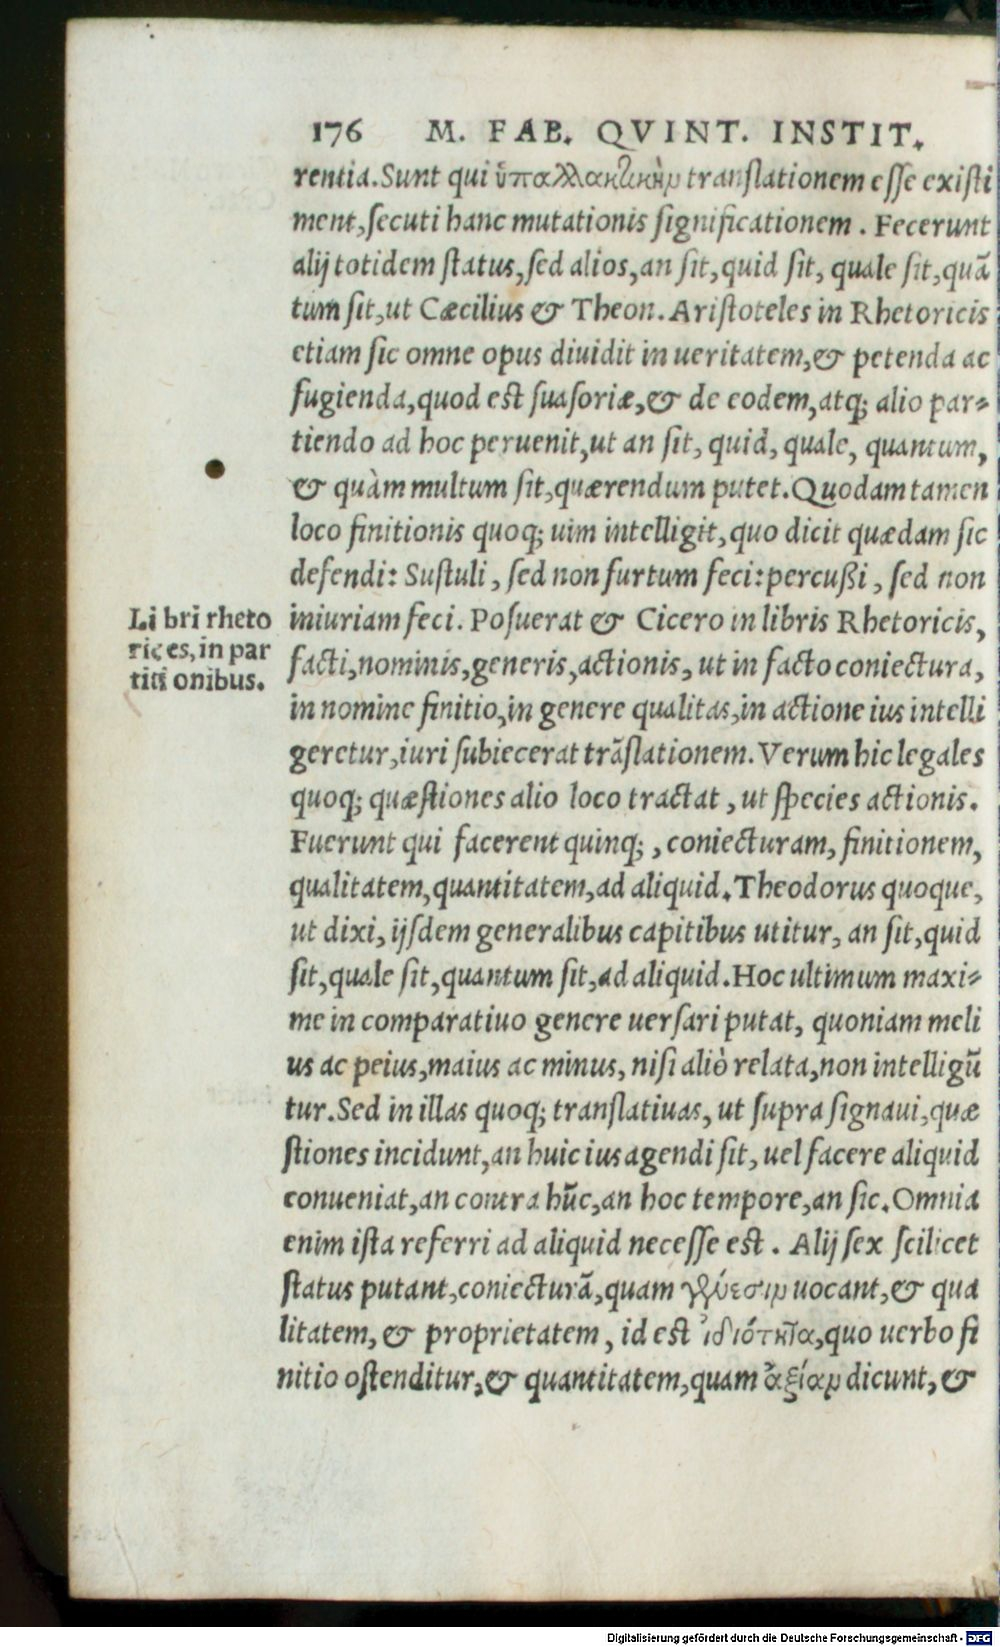 176 M. FAB. QVINT. INSTIT.
rentia. Sunt qui ὑπαλλακτικὴν translationem esse existi
ment, secuti hanc mutationis significationem. Fecerunt
alij totidem status, sed alios, an sit, quid sit, quale sit, quã
tum sit, ut Cæcilius & Theon. Aristoteles in Rhetoricis
etiam sic omne opus diuidit in ueritatem, & petenda ac
fugienda, quod est suasoriæ, & de eodem, atq; alio par-
tiendo ad hoc peruenit, ut an sit, quid, quale, quantum,
& quàm multum sit, quærendum putet. Quodam tamen
loco finitionis quoq; uim intelligit, quo dicit quædam sic
defendi: Sustuli, sed non furtum feci: percußi, sed non
Li bri rheto
rices, in par
titi onibus.
iniuriam feci. Posuerat & Cicero in libris Rhetoricis,
facti, nominis, generis, actionis, ut in facto coniectura,
in nomine finitio, in genere qualitas, in actione ius intelli
geretur, iuri subiecerat trãslationem. Verum hic legales
quoq; quæstiones alio loco tractat, ut species actionis.
Fuerunt qui facerent quinq;, coniecturam, finitionem,
qualitatem, quantitatem, ad aliquid. Theodorus quoque,
ut dixi, ijsdem generalibus capitibus utitur, an sit, quid
sit, quale sit, quantum sit, ad aliquid. Hoc ultimum maxi-
me in comparatiuo genere uersari putat, quoniam meli
us ac peius, maius ac minus, nisi aliò relata, non intelligũ
tur. Sed in illas quoq; translatiuas, ut supra signaui, quæ
stiones incidunt, an huic ius agendi sit, uel facere aliquid
conueniat, an contra hũc, an hoc tempore, an sic. Omnia
enim ista referri ad aliquid necesse est. Alij sex scilicet
status putant, coniecturã, quam γένεσιν uocant, & qua
litatem, & proprietatem, id est ἰδιότητα, quo uerbo fi
nitio ostenditur, & quantitatem, quam ἀξίαν dicunt, &
Digitalisierung gefördert durch die Deutsche Forschungsgemeinschaft - DFG